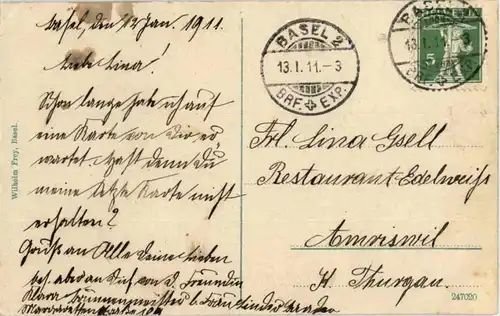 Basel, den 12. Jan. 1911.
Liebe Lina!
Schon lange hab ich auf
eine Karte von Dir er
wartet. Hast denn Du
meine letzte Karte nicht
erhalten?
Gruß an Alle Deine Lieben
bes. aber an Dich von d. Freundin
Klara
BASEL 2
13.I.11.-3
BRF. EXP.
BASEL
13.I.11.-3
BRF. EXP.
5
Frl. Lina Gsell
Restaurant Edelweiss
Amriswil
Kt. Thurgau.
Wilhelm Frey, Basel.
247020